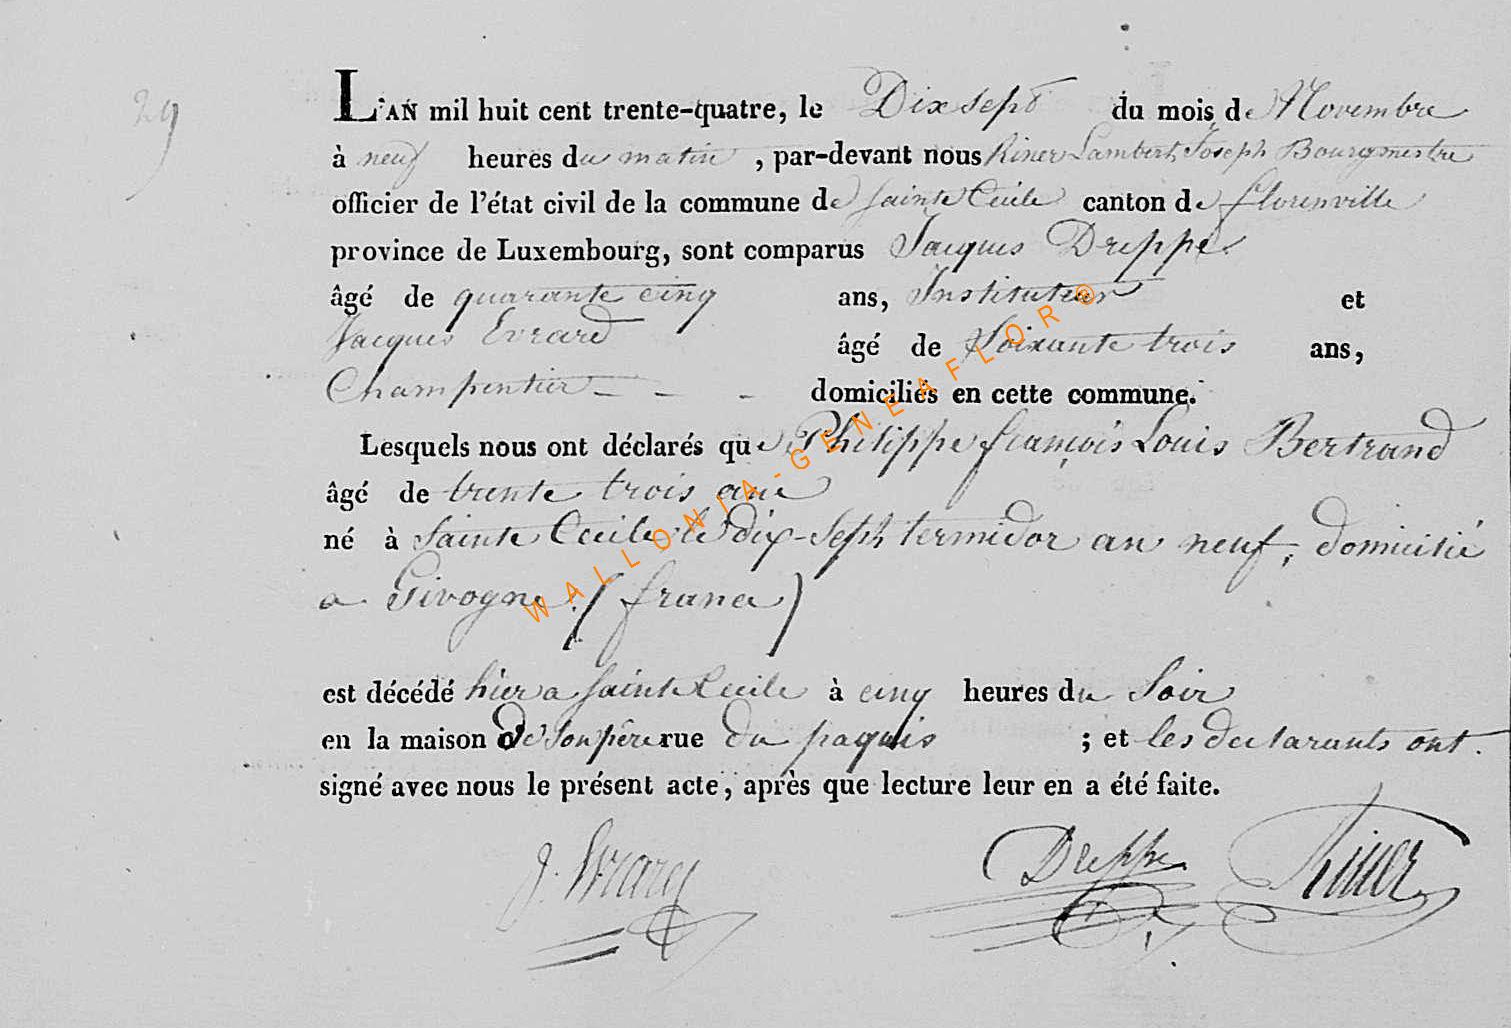 29
L'AN mil huit cent trente-quatre, le Dix sept du mois de Novembre
à neuf heures du matin, par-devant nous Riner Lambert Joseph Bourgmestre
officier de l'état civil de la commune de Sainte Cecile canton de florenville
province de Luxembourg, sont comparus Jacques Dreppe
âgé de quarante cinq ans, Instituteur et
Jacques Evrard âgé de Soixante trois ans,
Champentier - - - domiciliés en cette commune.
Lesquels nous ont déclarés que Philippe françois Louis Bertrand
âgé de trente trois ans
né à Sainte Cecile le dix-Sept termidor an neuf, domicilié
a Givogne (france)
est décédé hier a Sainte Cecile à cinq heures du Soir
en la maison de Son père rue du paquis ; et les declarants ont
signé avec nous le présent acte, après que lecture leur en a été faite.
J. Evrard Dreppe Riner
WALLONIA-GENEAFLOR®